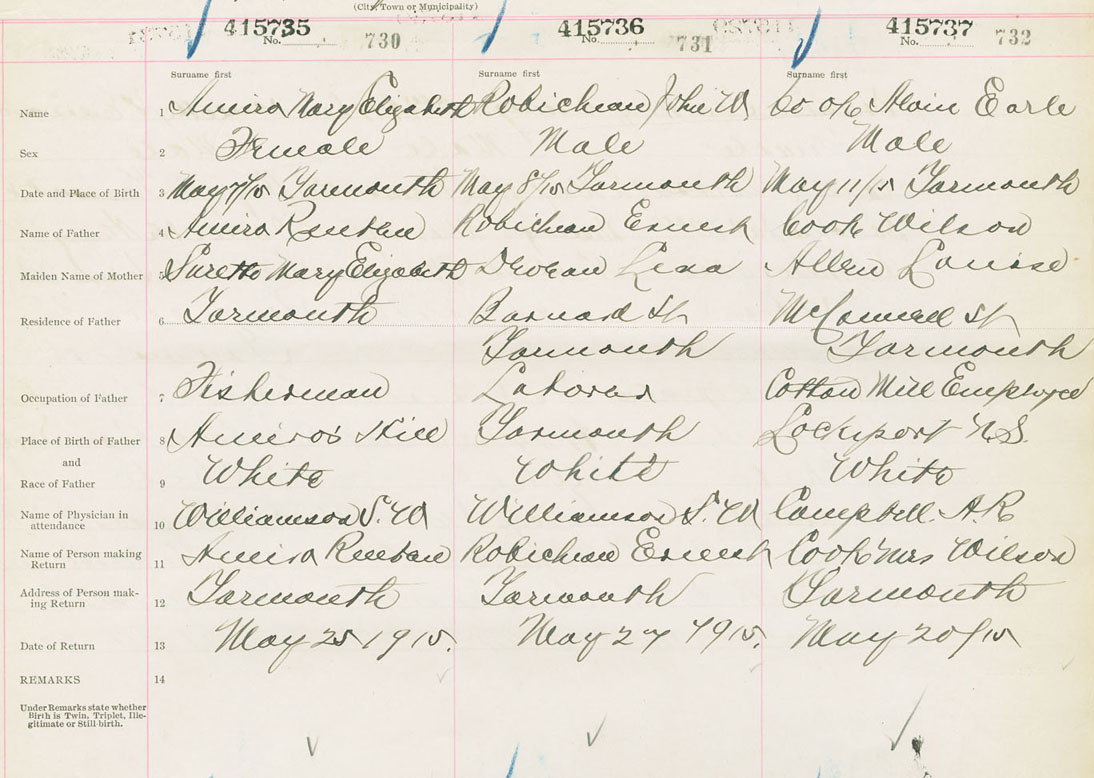 (City, Town or Municipality)
415735 415736 415737
No. 730 No. 731 No. 732
Surname first Surname first Surname first
Name 1 Amiro Mary Elizabeth Robicheau John W Cook Alvin Earle
Sex 2 Female Male Male
Date and Place of Birth 3 May 7/15 Yarmouth May 8/15 Yarmouth May 11/15 Yarmouth
Name of Father 4 Amiro Reuben Robicheau Ernest Cook Wilson
Maiden Name of Mother 5 Surette Mary Elizabeth Deveau Allen Louise
Residence of Father 6 Yarmouth Barnard St McConnell St
Yarmouth Yarmouth
Occupation of Father 7 Fisherman Laborer Cotton Mill Employee
Place of Birth of Father 8 Amiro's Hill Yarmouth Lockeport N.S.
and
Race of Father 9 White White White
Name of Physician in
attendance 10 Williamson S. W Williamson S. W Campbell. A. R
Name of Person making
Return 11 Amiro Reuben Robicheau Ernest Cook Mrs Wilson
Address of Person mak-
ing Return 12 Yarmouth Yarmouth Yarmouth
Date of Return 13 May 25 1915. May 27 1915. May 20/15
REMARKS 14
Under Remarks state whether
Birth is Twin, Triplet, Ille-
gitimate or Still-birth.